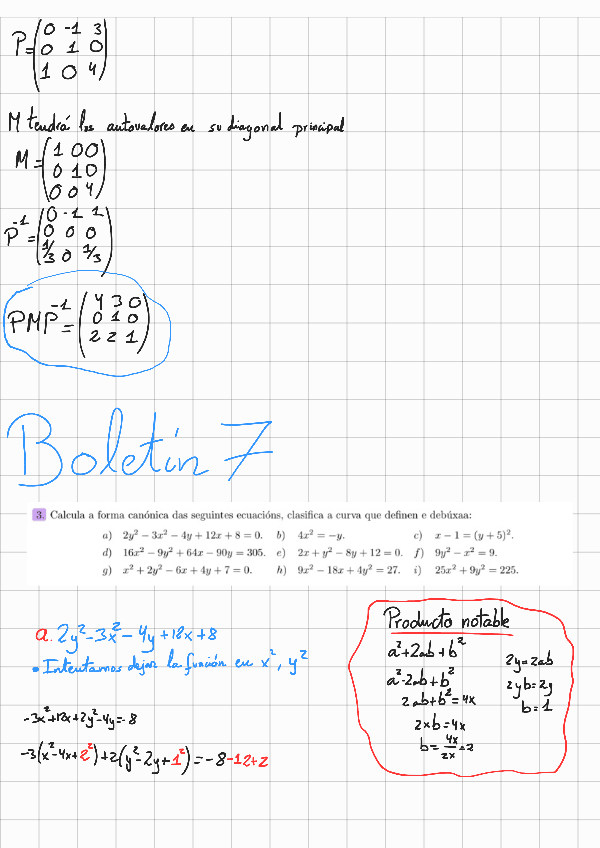 P=(0 -1 3
0 1 0
1 0 4)
M tendrá los autovalores en su diagonal principal
M=(1 0 0
0 1 0
0 0 4)
P⁻¹=(0 -1 1
0 0 0
1/3 0 1/3)
PMP⁻¹=(4 3 0
0 1 0
2 2 1)
Boletín 7
3. Calcula a forma canónica das seguintes ecuacións, clasifica a curva que definen e debúxaa:
a) 2y² − 3x² − 4y + 12x + 8 = 0. b) 4x² = −y. c) x − 1 = (y + 5)².
d) 16x² − 9y² + 64x − 90y = 305. e) 2x + y² − 8y + 12 = 0. f) 9y² − x² = 9.
g) x² + 2y² − 6x + 4y + 7 = 0. h) 9x² − 18x + 4y² = 27. i) 25x² + 9y² = 225.
a. 2y²-3x²-4y+12x+8
• Intentamos dejar la función en x², y²
-3x²+12x+2y²-4y=-8
-3(x²-4x+2²)+2(y²-2y+1²)=-8-12+2
Producto notable
a²+2ab+b²
a²-2ab+b²
2ab+b²=4x
2xb=4x
b=4x/2x=2
2y=2ab
2yb=2y
b=1